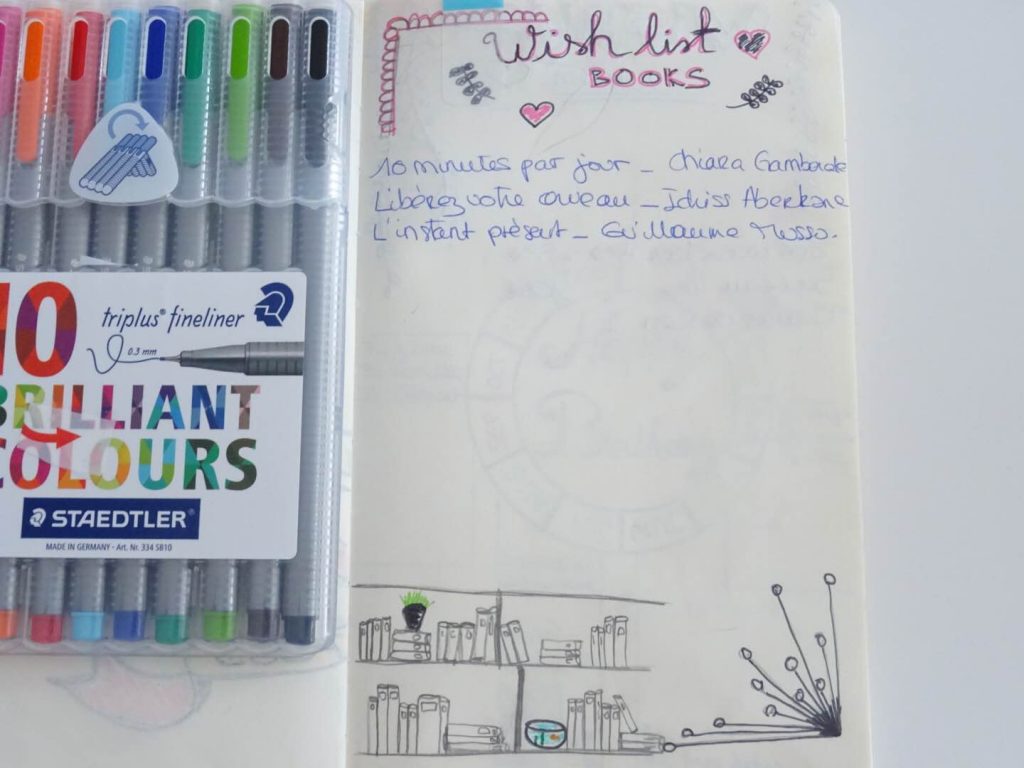 Wish list
BOOKS
10 minutes par jour _ Chiara Gamberale
Libérez votre cerveau _ Idriss Aberkane
L'instant présent _ Guillaume Musso.
10
triplus® fineliner
0.3 mm
BRILLIANT
COLOURS
STAEDTLER®
MADE IN GERMANY - Art. Nr. 334 SB10